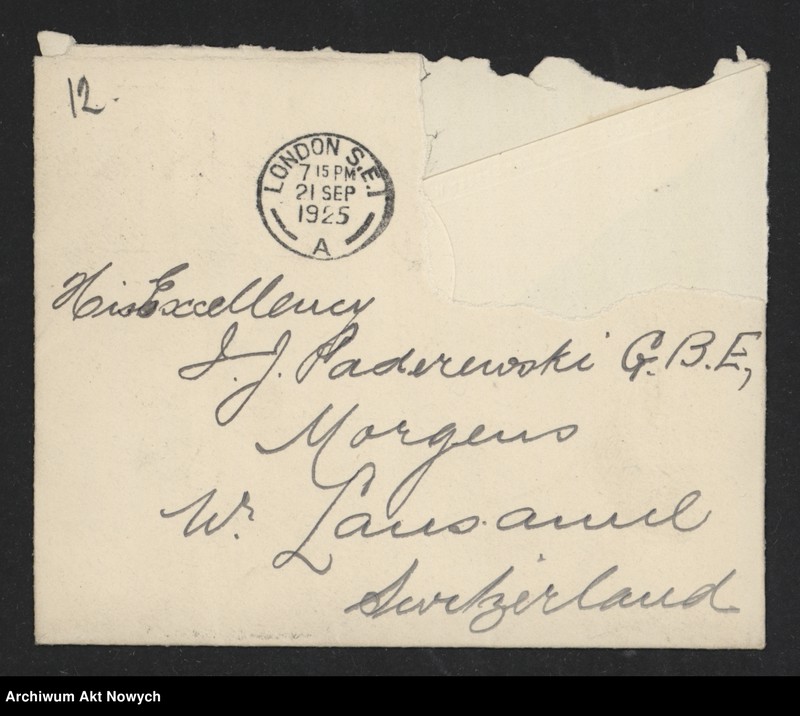 12.
LONDON S.E.1
7 15 PM
21 SEP
1925
A
His Excellency
I. J. Paderewski G.B.E,
Morgens
Nr. Lausanne
Switzerland
Archiwum Akt Nowych